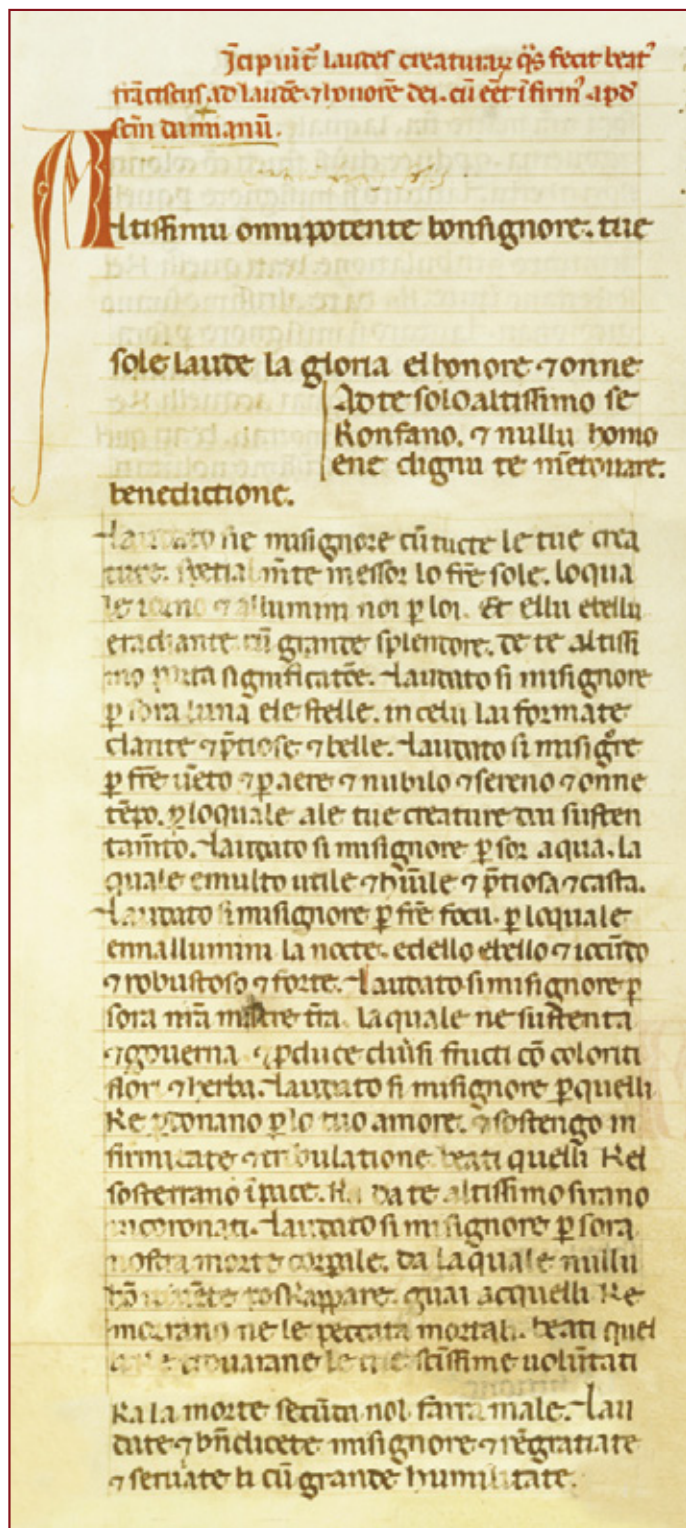 Incipiu͂t laudes creaturaꝝ q̄s fecit beatꝰ
fra͂ciscus ad laude͂ ⁊ honore͂ dei. cu͂ ee͂t i͂firmꝰ apd̕
sc͂m damianu͂.
Altissimu omnipotente bonsignore. tue
sole laude la gloria elhonore ⁊ onne
Ad te solo altissimo se
Konfano. ⁊ nullu homo
ene dignu te me͂touare.
benedictione.
Laudato sie misignore cu͂ tucte le tue crea
ture. spetialm͂te messor lo fr͂e sole. loqua
le iorno ⁊ allumini noi p̱ loi. Et ellu ebellu
eradiante cu͂ grande splendore. de te altissi
mo porta significatio͂e. Laudato si misignore
p̱ sora luna ele stelle. in celu lai formate
clarite ⁊ p̄tiose ⁊ belle. Laudato si misig͂re
p̱ fr͂e ue͂to ⁊ p̱ aere ⁊ nubilo ⁊ sereno ⁊ onne
te͂po. p̱ loquale ale tue creature dai susten
tam͂to. Laudato si misignore p̱ sor aqua. la
quale emulto utile ⁊ hu͂ile ⁊ p̄tiosa ⁊ casta.
Laudato si misignore p̱ fr͂e focu. p̱ loquale
ennallumini la nocte. edello ebello ⁊ iocu͂do
⁊ robustoso ⁊ forte. Laudato si misignore p̱
sora nr͂a matre tr͂a. laquale ne sustenta
⁊ gouerna. ⁊ ꝓduce diu͂si fructi co͂ coloriti
flori ⁊ herba. Laudato si misignore p̱ quelli
Ke p̱donano p̱ lo tuo amore. ⁊ sostengo in
firmitate ⁊ tribulatione beati quelli Kel
sosterrano i͂ pace. Ka da te altissimo sirano
incoronati. Laudato si misignore p̱ sora
nostra morte corp̱ale. da laquale nullu
ho͂ uiue͂te poskappare. guai acquelli Ke
morrano ne le peccata mortali. beati quel
li ke trouarane le tue sc͂issime uolu͂tati
Ka la morte secu͂da nol farra male. Lau
date ⁊ bn͂dicete misignore ⁊ re͂gratiate
⁊ seruiate li cu͂ grande humilitate.